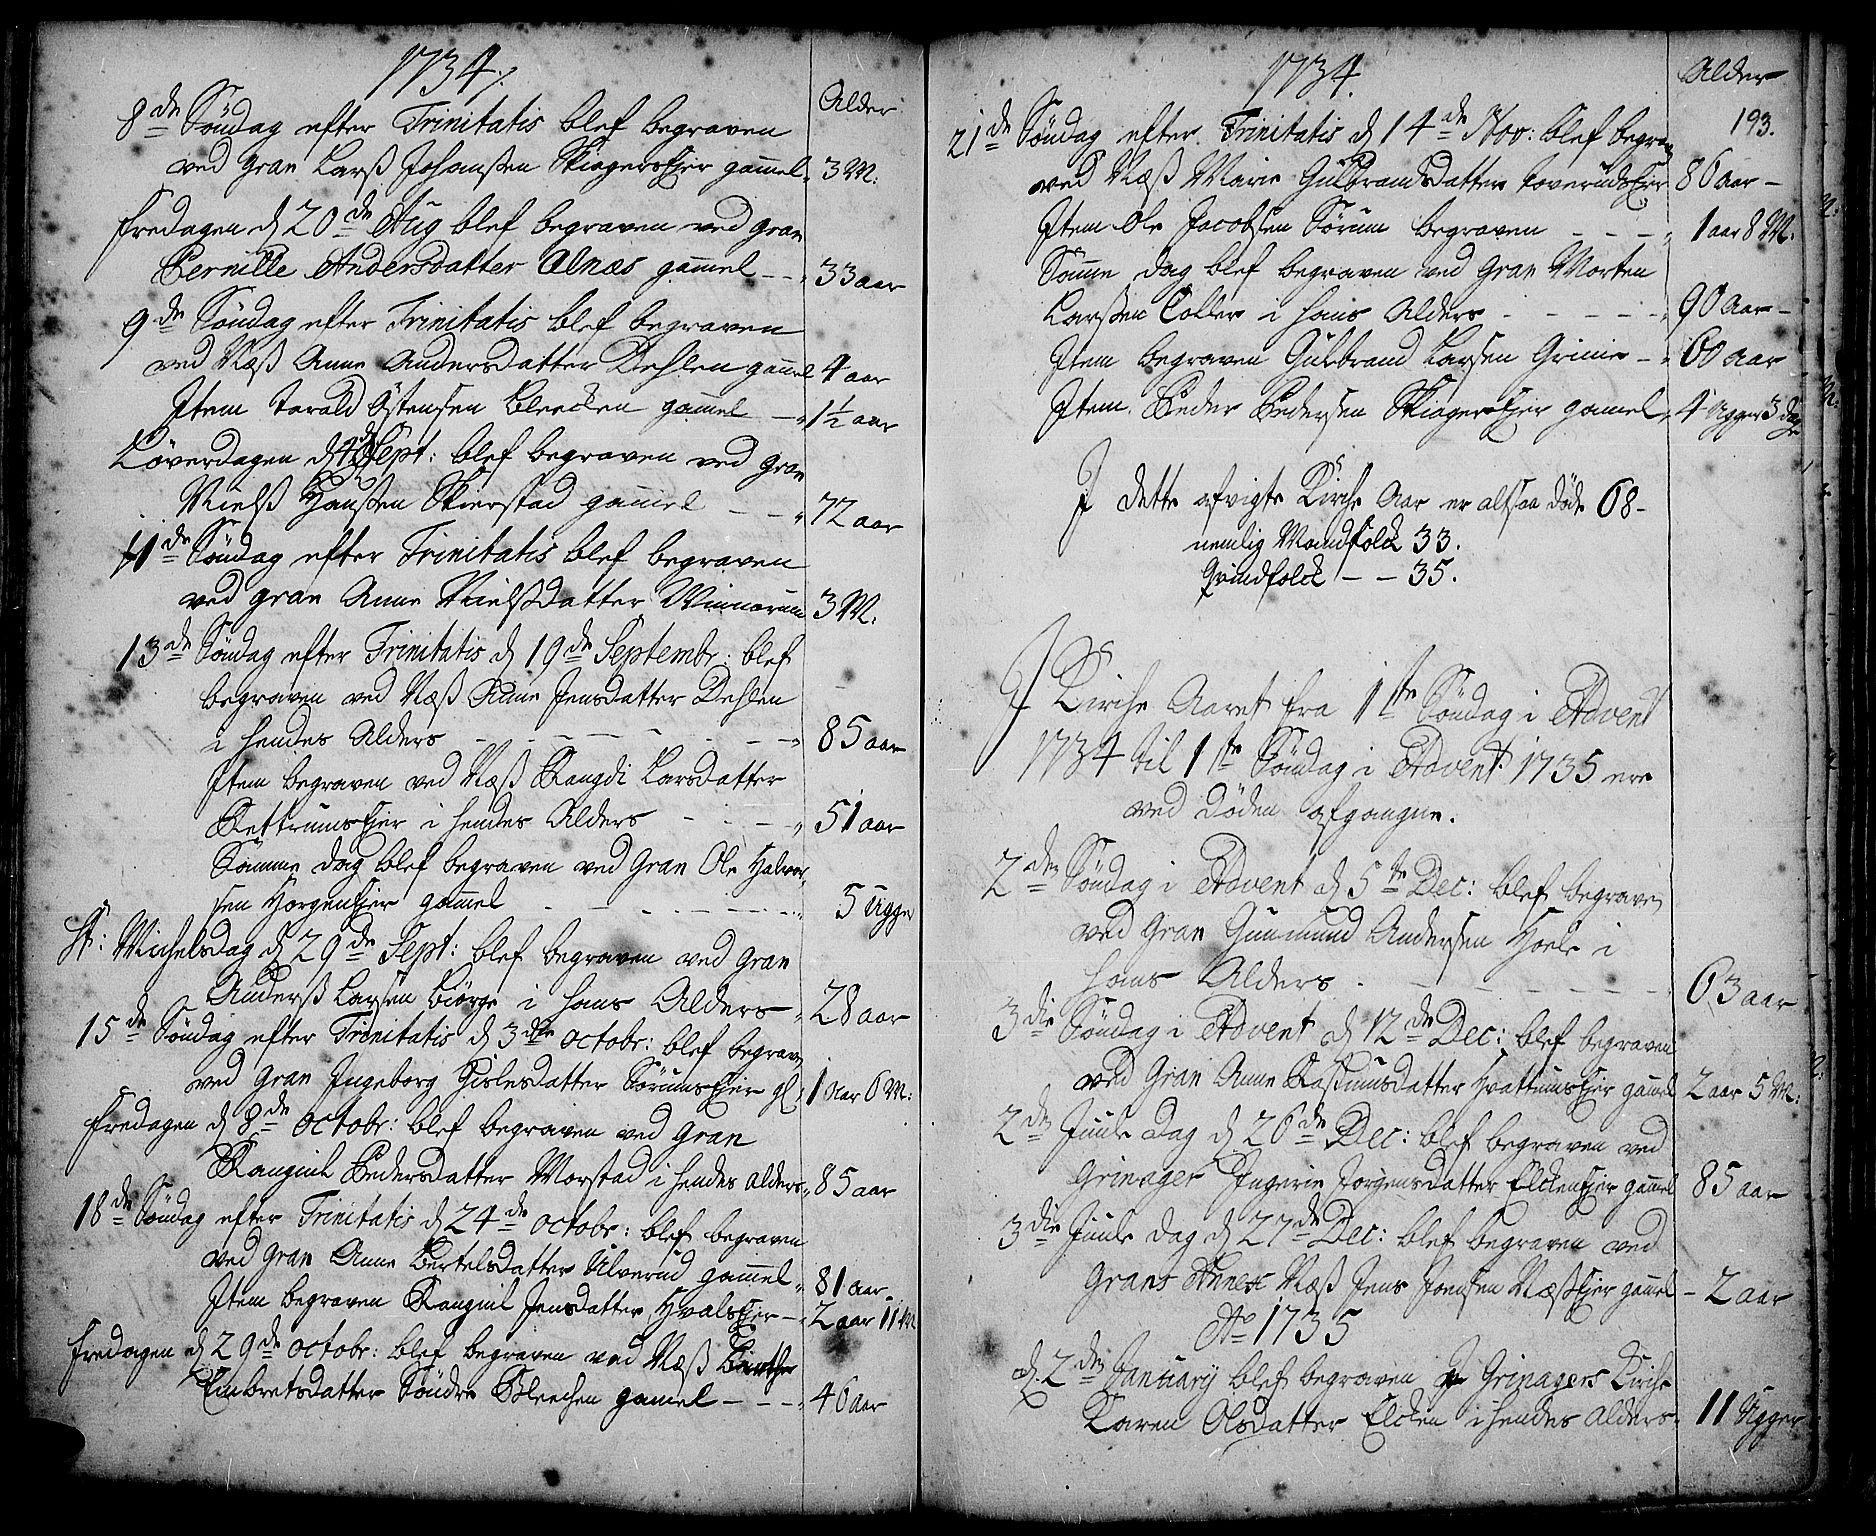 1734.
Alder
8de Søndag efter Trinitatis blef begraven
ved Gran Larß Johanßen Skiagerseier gam̄el 3 M:
Fredagen d 20de Aug blef begraven ved Gran
Pernille Andersdatter Alnæs gam̄el - - 33 aar
9de Søndag efter Trinitatis blef begraven
ved Næß Anne Andersdatter Dehlen gam̄el 4 aar
Item Tarald Østensen Bleecken gam̄el - 1½ aar
Løverdagen d 4de Sept: blef begraven ved Gran
Nielß Hanßen Skierstad gam̄el - - 72 aar
11de Søndag efter Trinitatis blef begraven
ved Gran Anne Nielßdatter Winnorum 3 M:
13de Søndag efter Trinitatis d 19de Septembr: blef
begraven ved Næß Anne Jensdatter Dehlen
i hendes Alders - - - - - - 85 aar
Item begraven ved Næß Rangdi Larsdatter
Rettrumseier i hendes Alders - - - 51 aar
Sam̄me dag blef begraven ved Gran Ole Halvor,
sen Horgeneier gam̄el - - - - - 5 Ugger
St: Michelsdag d 29de Sept: blef begraven ved Gran
Anderß Larsen Biørge i hans Alders - 28 aar
15de Søndag efter Trinitatis d 3die Octobr: blef begrav,
ved Gran Ingeborg Gislesdatter Sørumseier gl, 1 Aar 6 M:
Fredagen d 8de Octobr: blef begraven ved Gran
Rangnil Pedersdatter Morstad i hendes Alders 85 aar
18de Søndag efter Trinitatis d 24de Octobr: blef begraven
ved Gran Anne Bertelsdatter Ulverud gam̄el 81 aar.
Item begraven Rangnil Jensdatter Hvalseier - 2 aar 11 M
Fredagen d 29de Octobr: blef begraven ved Næß Berthe
Embretsdatter Søndre Bleechen gamel - - - 46 aar
1734.
Alder
193.
21de Søndag efter Trinitatis d 14de Nov: blef begrav,
ved Næß Marie Gulbrandsdatter Toverudseier 86 aar -
Item Ole Jacobsen Sørum begraven - - - 1 aar 8 M:
Sam̄e dag blef begraven ved Gran Morten
Larßen Coller i hans Alders - - - - - 90 Aar -
Item begraven Gulbrand Larsen Grinie - 60 Aar
Item Peder Pedersen Skiagerseier gamel 4 Ugger 3 dage
I dette afvigte Kirche Aar er altsaa døde 68 -
nemlig Mandfolck 33.
Qvindfolck - - 35.
I Kirche Aaret fra 1ste Søndag i Advent
1734 til 1ste Søndag i Advent 1735 ere
ved Døden afgangne.
2den Søndag i Advent d 5te Dec: blef begrave,
ved Gran Gunmund Andersen Hoele i
hans Alders - - - - - - 63 aar
3die Søndag i Advent d 12de Dec: blef begraven
ved Gran Anne Raßmusdatter Hvattumseier gam̄el 2 aar 5 M:
2den Juule Dag d 26de Dec: blef begraven ved
Grinager Ingerie Jorgensdatter Elckeneier gam̄el 85 aar
3die Juule dag d 27de Dec: blef begraven ved
Grans Annex Næß Jens Joensen Næßeier gam̄el - 2 aar
Ao 1735
d. 2den January blef begraven ved Grinagers Kirche
Karen Olsdatter Elcken i hendes Alders - 11 Ugger